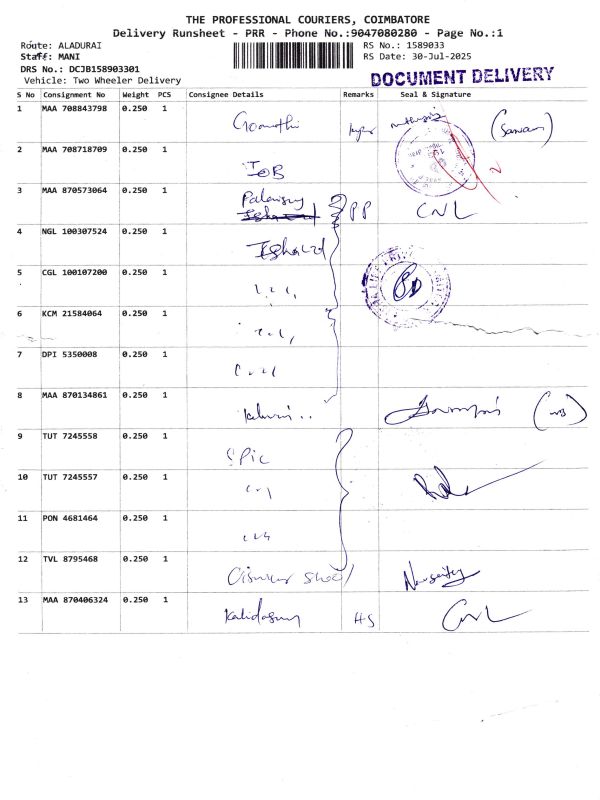 THE PROFESSIONAL COURIERS, COIMBATORE
Delivery Runsheet - PRR - Phone No.:9047080280 - Page No.:1
Route: ALADURAI
RS No.: 1589033
Staff: MANI
RS Date: 30-Jul-2025
DRS No.: DCJB158903301
Vehicle: Two Wheeler Delivery
DOCUMENT DELIVERY
S No Consignment No Weight PCS Consignee Details Remarks Seal & Signature
1 MAA 708843798 0.250 1 Gomathi
2 MAA 708718709 0.250 1 IOB
3 MAA 870573064 0.250 1 PP CNL
4 NGL 100307524 0.250 1
5 CGL 100107200 0.250 1
6 KCM 21584064 0.250 1
7 DPI 5350008 0.250 1
8 MAA 870134861 0.250 1
9 TUT 7245558 0.250 1 SPIC
10 TUT 7245557 0.250 1
11 PON 4681464 0.250 1
12 TVL 8795468 0.250 1
13 MAA 870406324 0.250 1 HS CNL